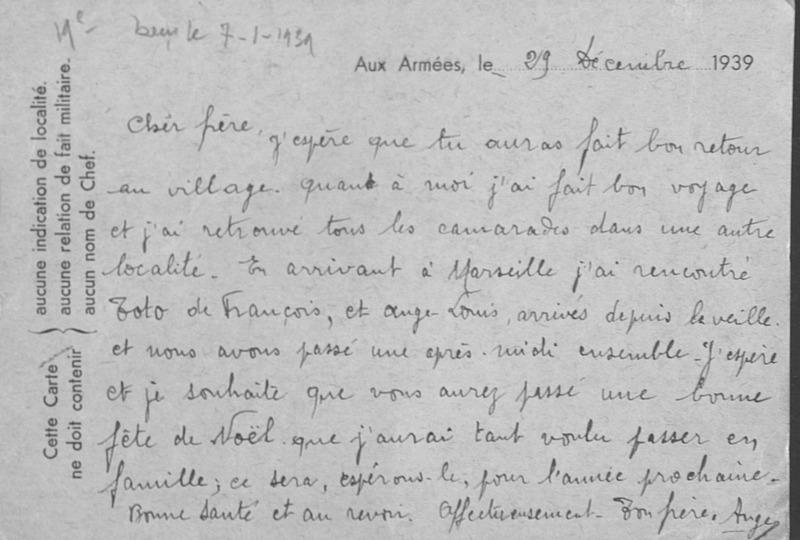 7-1-1939
Aux Armées, le 29 Décembre 1939
Cher frère, j'espère que tu auras fait bon retour
au village. Quant à moi j'ai fait bon voyage
et j'ai retrouvé tous les camarades dans une autre
localité. En arrivant à Marseille j'ai rencontré
Toto de François, et Ange-Louis, arrivés depuis la veille.
et nous avons passé une après-midi ensemble. J'espère
et je souhaite que vous aurez passé une bonne
fête de Noël que j'aurai tant voulu passer en
famille; ce sera, espérons-le, pour l'année prochaine.
Bonne santé et au revoir. Affectueusement - Ton frère. Ange
Cette Carte ne doit contenir
aucune indication de localité.
aucune relation de fait militaire.
aucun nom de Chef.